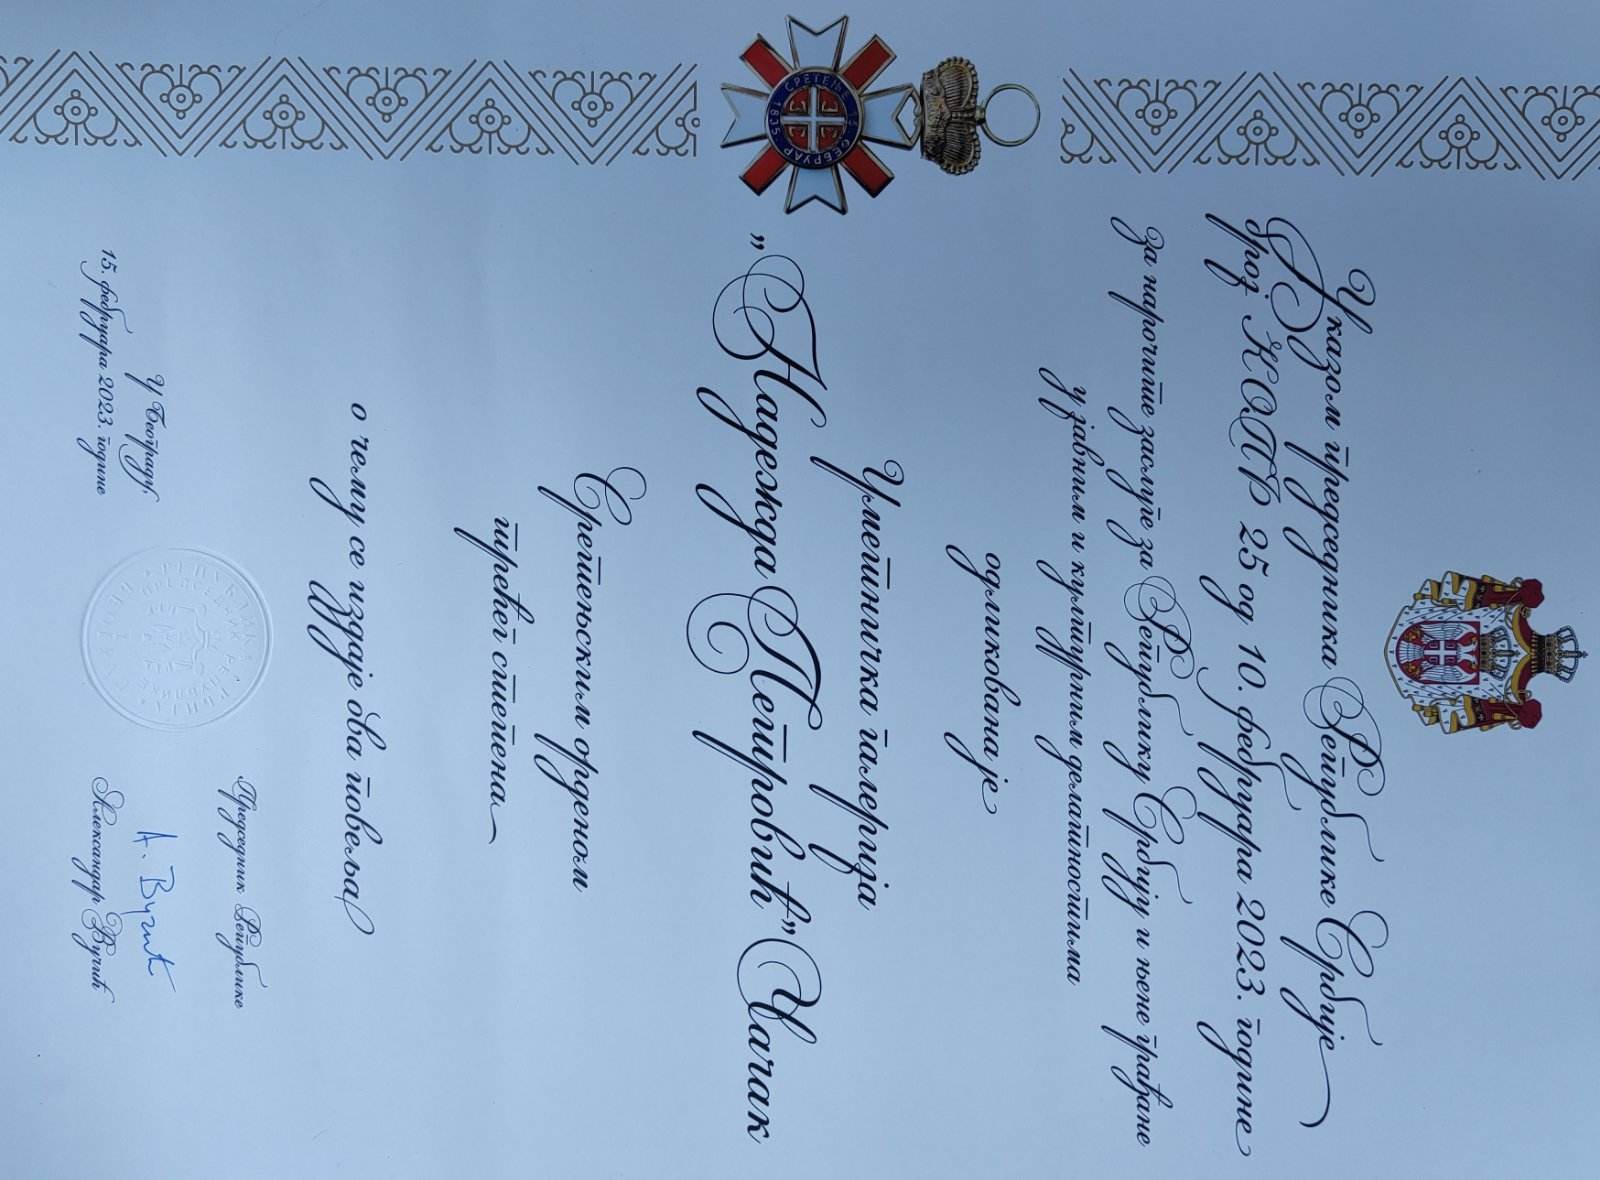 Указом председника Републике Србије
број КОПР 25 од 10. фебруара 2023. године
за нарочите заслуге за Републику Србију и њене грађане
у јавним и културним делатностима
одликована је
Уметничка галерија
„Надежда Петровић” Чачак
Сретењским орденом
трећег степена
о чему се издаје ова повеља
У Београду,
15. фебруара 2023. године
Председник Републике
А. Вучић
Александар Вучић
СРЕТЕЊЕ 15 ФЕБРУАР 1835